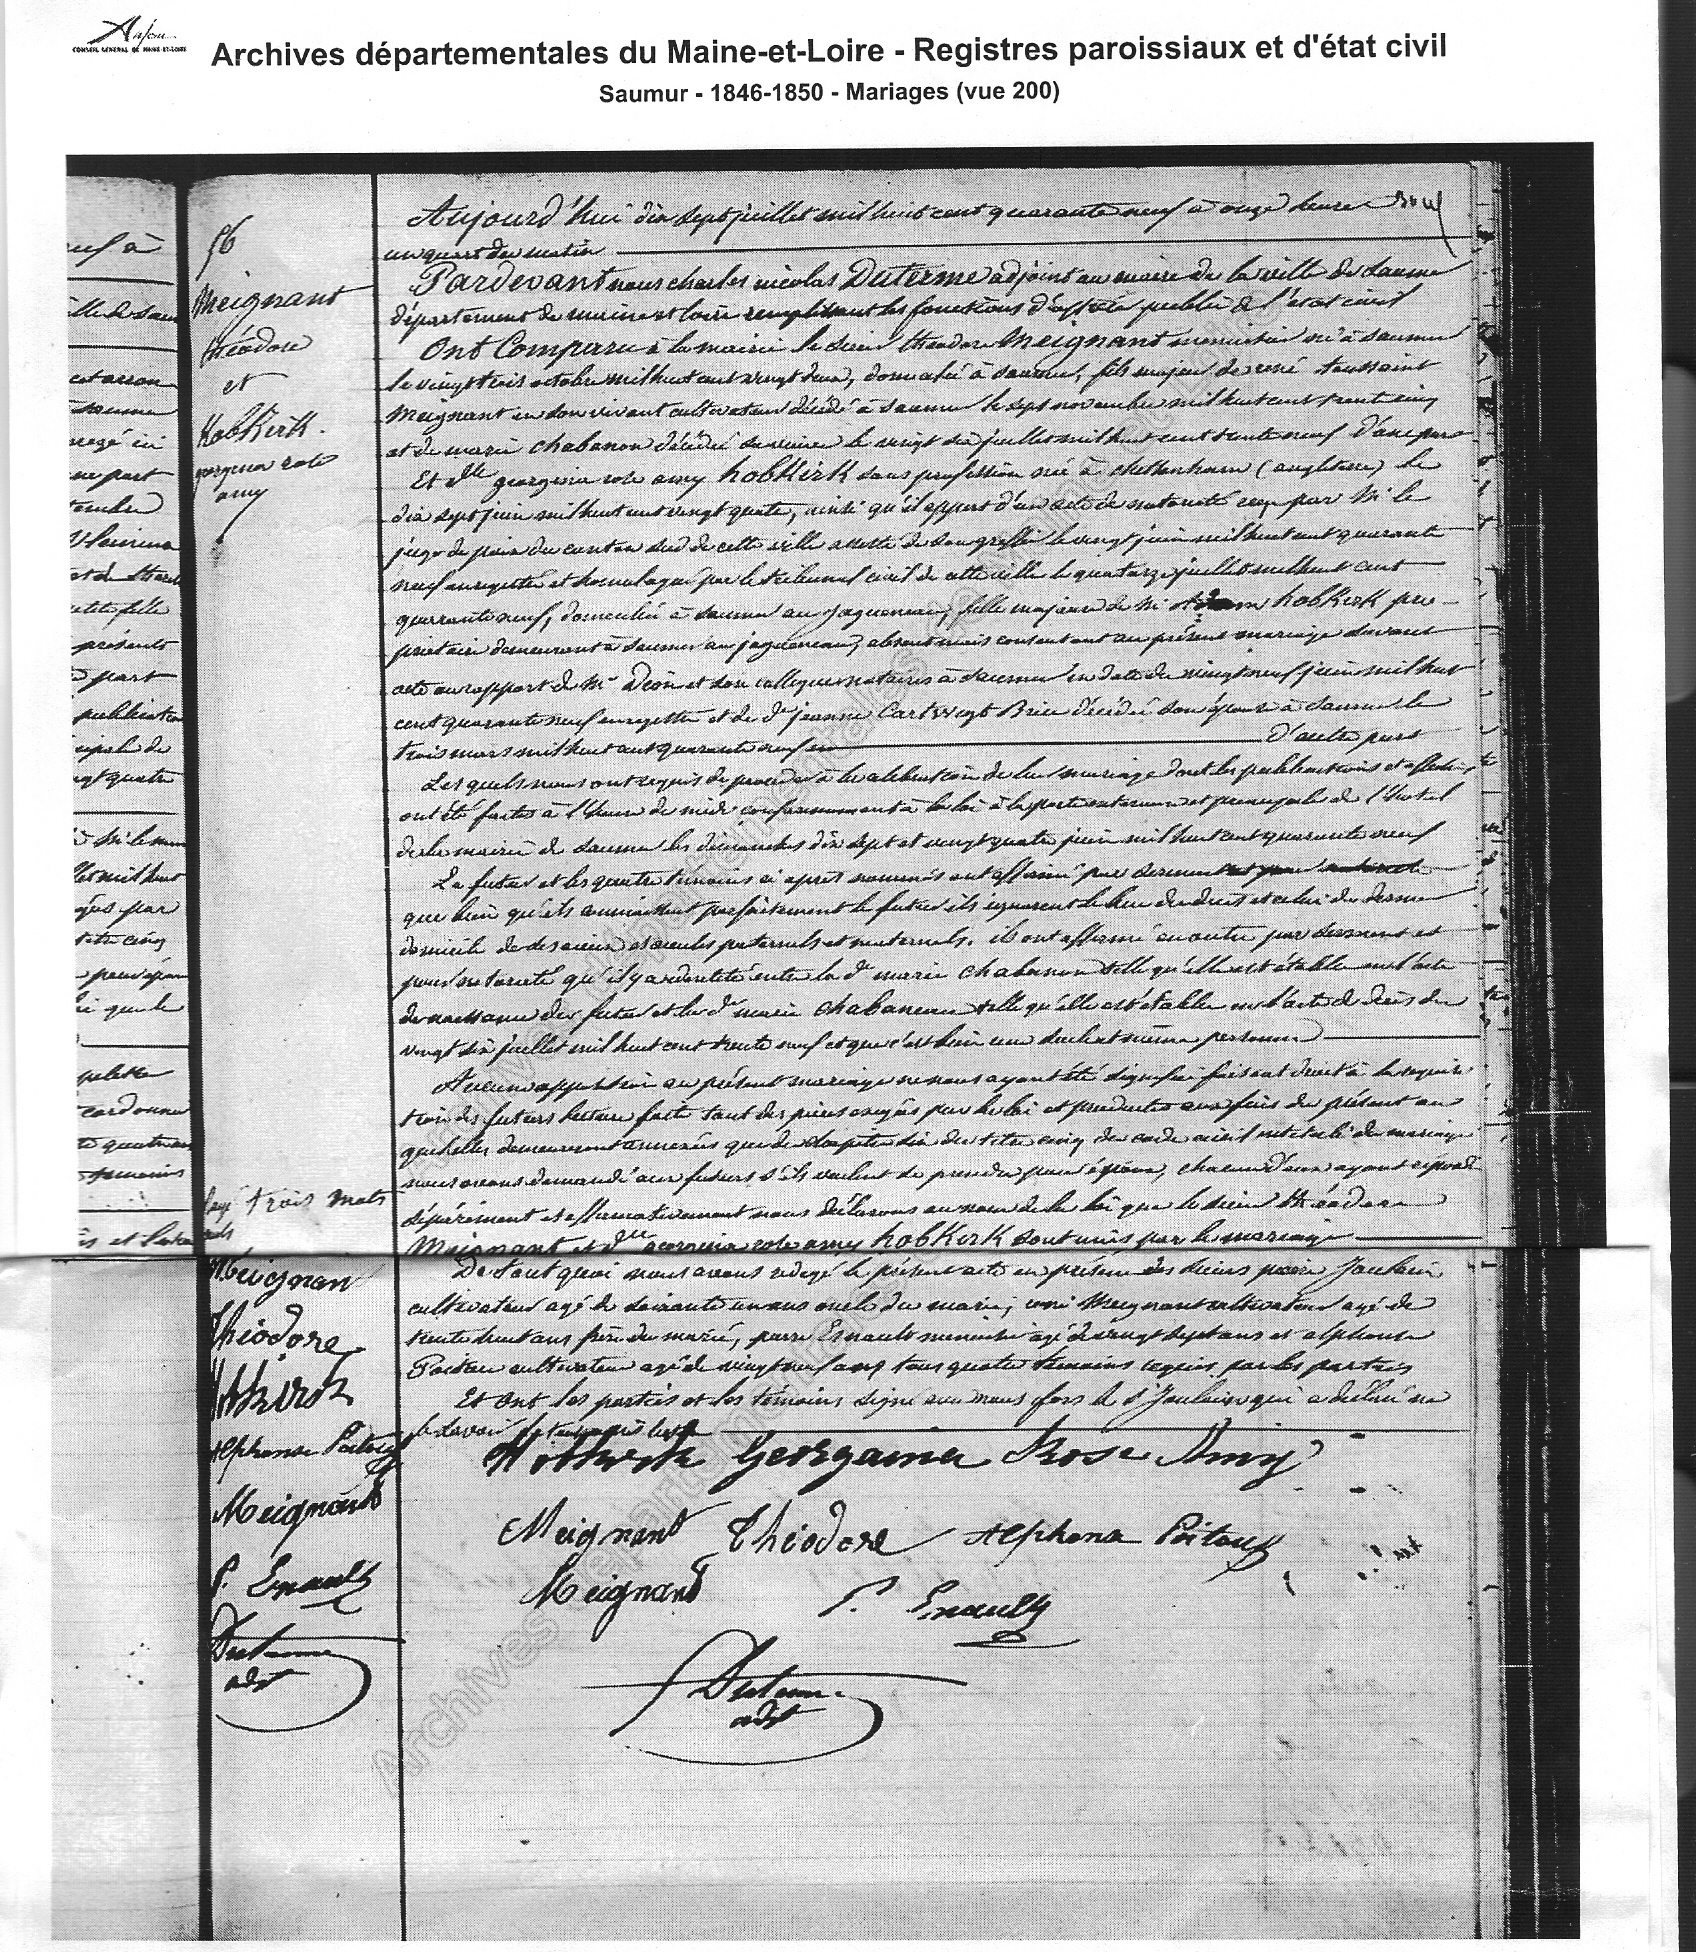 Anjou
CONSEIL GENERAL DE MAINE-ET-LOIRE
Archives départementales du Maine-et-Loire - Registres paroissiaux et d'état civil
Saumur - 1846-1850 - Mariages (vue 200)
56
Meignant
théodore
et
Hobkirk.
georgina rose
amy
Aujourd'hui dix sept juillet mil huit cent quarante neuf à onze heures
un quart du matin
Pardevant nous charles nicolas Duterme adjoint au maire de la ville de Saumur
département de maine et loire remplissant les fonctions d'officier public de l'état civil
Ont Comparu à la mairie le sieur théodore Meignant menuisier né à saumur
le vingt trois octobre mil huit cent vingt deux, domicilié à saumur, fils majeur de rené toussaint
Meignant en son vivant cultivateur décédé à saumur le sept novembre mil huit cent trente cinq
et de marie chabanon décédée le vingt six juillet mil huit cent trente neuf d'une part
Et dlle georgina rose amy hobkirk sans profession née à cheltenham (angleterre) le
dix sept juin mil huit cent vingt quatre, ainsi qu'il appert d'un acte de notoriété reçu par Mr le
juge de paix du canton sud de cette ville assisté de son greffier le vingt juin mil huit cent quarante
neuf enregistré et homologué par le tribunal civil de cette ville le quatorze juillet mil huit cent
quarante neuf, domiciliée à saumur au jagueneau, fille majeure de Mr Adam hobkirk pro-
priétaire demeurant à saumur au jagueneau, absent mais consentant au présent mariage suivant
acte au rapport de Me Dion et son collègue notaires à Saumur en date du vingt neuf juin mil huit
cent quarante neuf enregistré et de de jeanne Cartwrigt Brice décédée son épouse à saumur le
trois mars mil huit cent quarante neuf d'autre part
Lesquels nous ont requis de procéder à la célébration de leur mariage dont les publications et affiches
ont été faites à l'heure de midi conformément à la loi à la porte extérieure et principale de l'hotel
de la mairie de saumur les dimanches dix sept et vingt quatre juin mil huit cent quarante neuf
Le futur et les quatre témoins ci après nommés ont affirmé par serment
que bien qu'ils connaissent parfaitement le futur ils ignorent le lieu du décès et celui du dernier
domicile de ses aieux et aieules paternels et maternels. ils ont affirmé en outre par serment et
pour notoriété qu'il y a identité entre la de marie chabanon telle qu'elle est établie en l'acte
de naissance du futur et la de marie chabaneau telle qu'elle est établie en l'acte de décès du
vingt six juillet mil huit cent trente neuf et que c'est bien une seule et même personne
Aucune opposition au présent mariage ne nous ayant été signifiée faisant droit à la réquisi
tion des futurs lecture faite tant des pièces exigées par la loi et produites aux fins du présent au
quel elles demeurent annexées que du chapitre six du titre cinq du code civil intitulé du mariage
nous avons demandé aux futurs s'ils veulent se prendre pour époux, chacun d'eux ayant répondu
séparément et affirmativement nous déclarons au nom de la loi que le sieur théodore
Meignant et dlle georgina rose amy hobkirk sont unis par le mariage
De tout quoi nous avons rédigé le présent acte en présence des sieurs pierre Joulain
cultivateur agé de soixante un ans oncle du marié, rené Meignant cultivateur agé de
trente huit ans frère du marié, pierre Enault menuisier agé de vingt sept ans et alphonse
Poitou cultivateur agé de vingt neuf ans tous quatre témoins requis par les parties
Et ont les parties et les témoins signé avec nous fors le sr Joulain qui a déclaré ne
le savoir lecture
Rayé trois mots
nuls
Meignant
Théodore
Hobkirk
Alphonse Poitou
Meignant
P. Enault
Duterme
adjt
Hobkirk Georgaina Rose Amy
Meignant Théodore Alphonse Poitou
Meignant P. Enault
Duterme
adjt